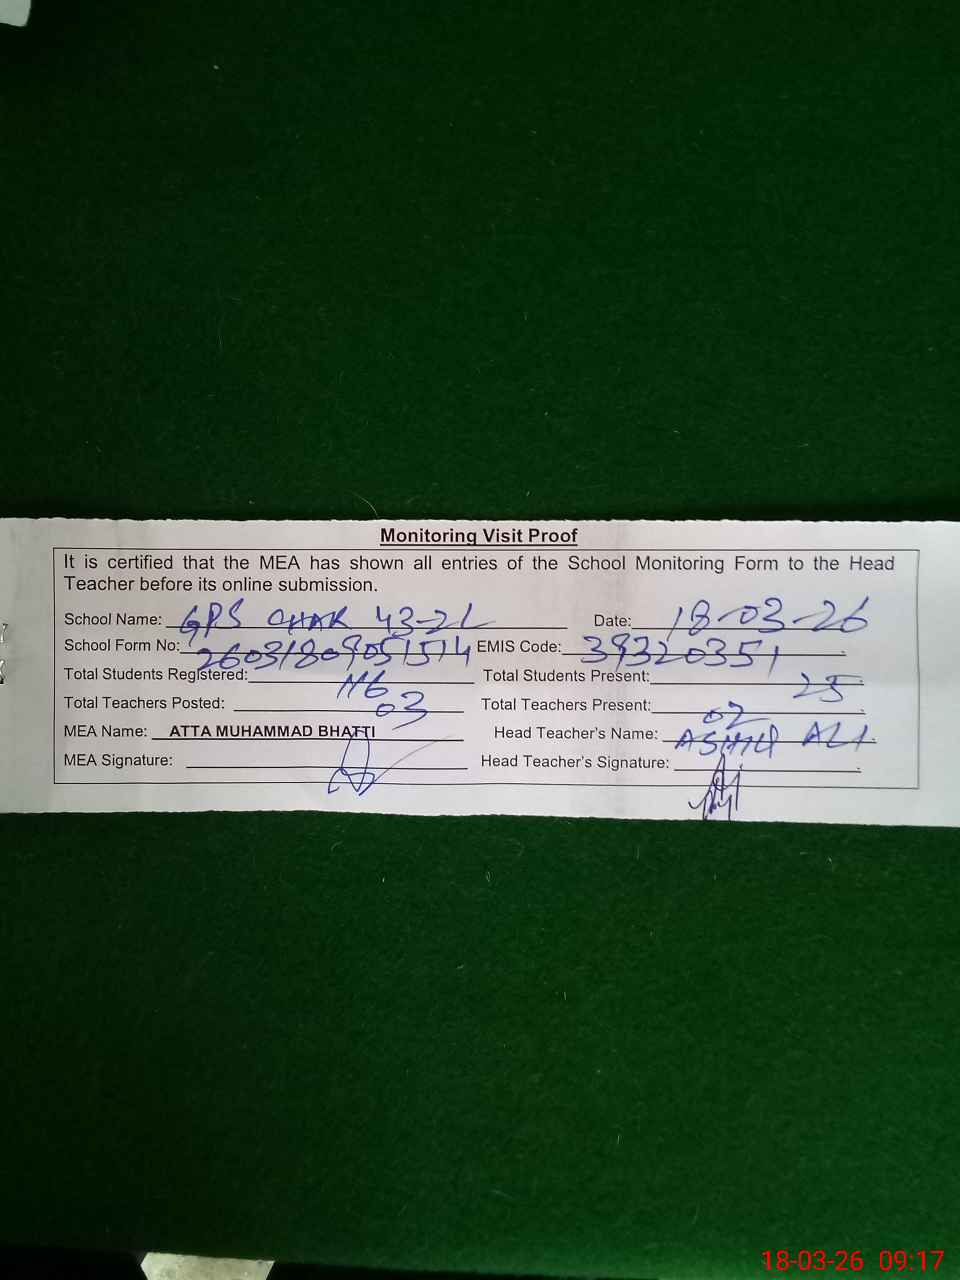 Monitoring Visit Proof
It is certified that the MEA has shown all entries of the School Monitoring Form to the Head
Teacher before its online submission.
School Name: GPS CHAK 43-2L Date: 18-03-26
School Form No: 26031809051514 EMIS Code: 39320351
Total Students Registered: 116 Total Students Present: 25
Total Teachers Posted: 03 Total Teachers Present: 02
MEA Name: ATTA MUHAMMAD BHATTI Head Teacher's Name: ALI
MEA Signature: Head Teacher's Signature:
18-03-26 09:17